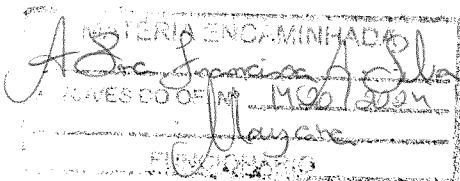 MATÉRIA ENCAMINHADA
A Sra Francisca A. Silva
ATRAVÉS DO OF. Nº 1406/2024
Mayara
FUNCIONÁRIO